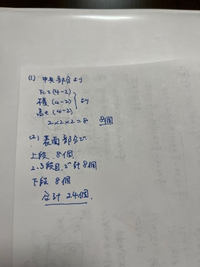 (1) 中央部分より
たて(4-2)
横(4-2)
高さ(4-2)
より
2×2×2=8 8個
(2) 表面部分で
上段 8個
2.3段目で計8個
下段 8個
合計 24個